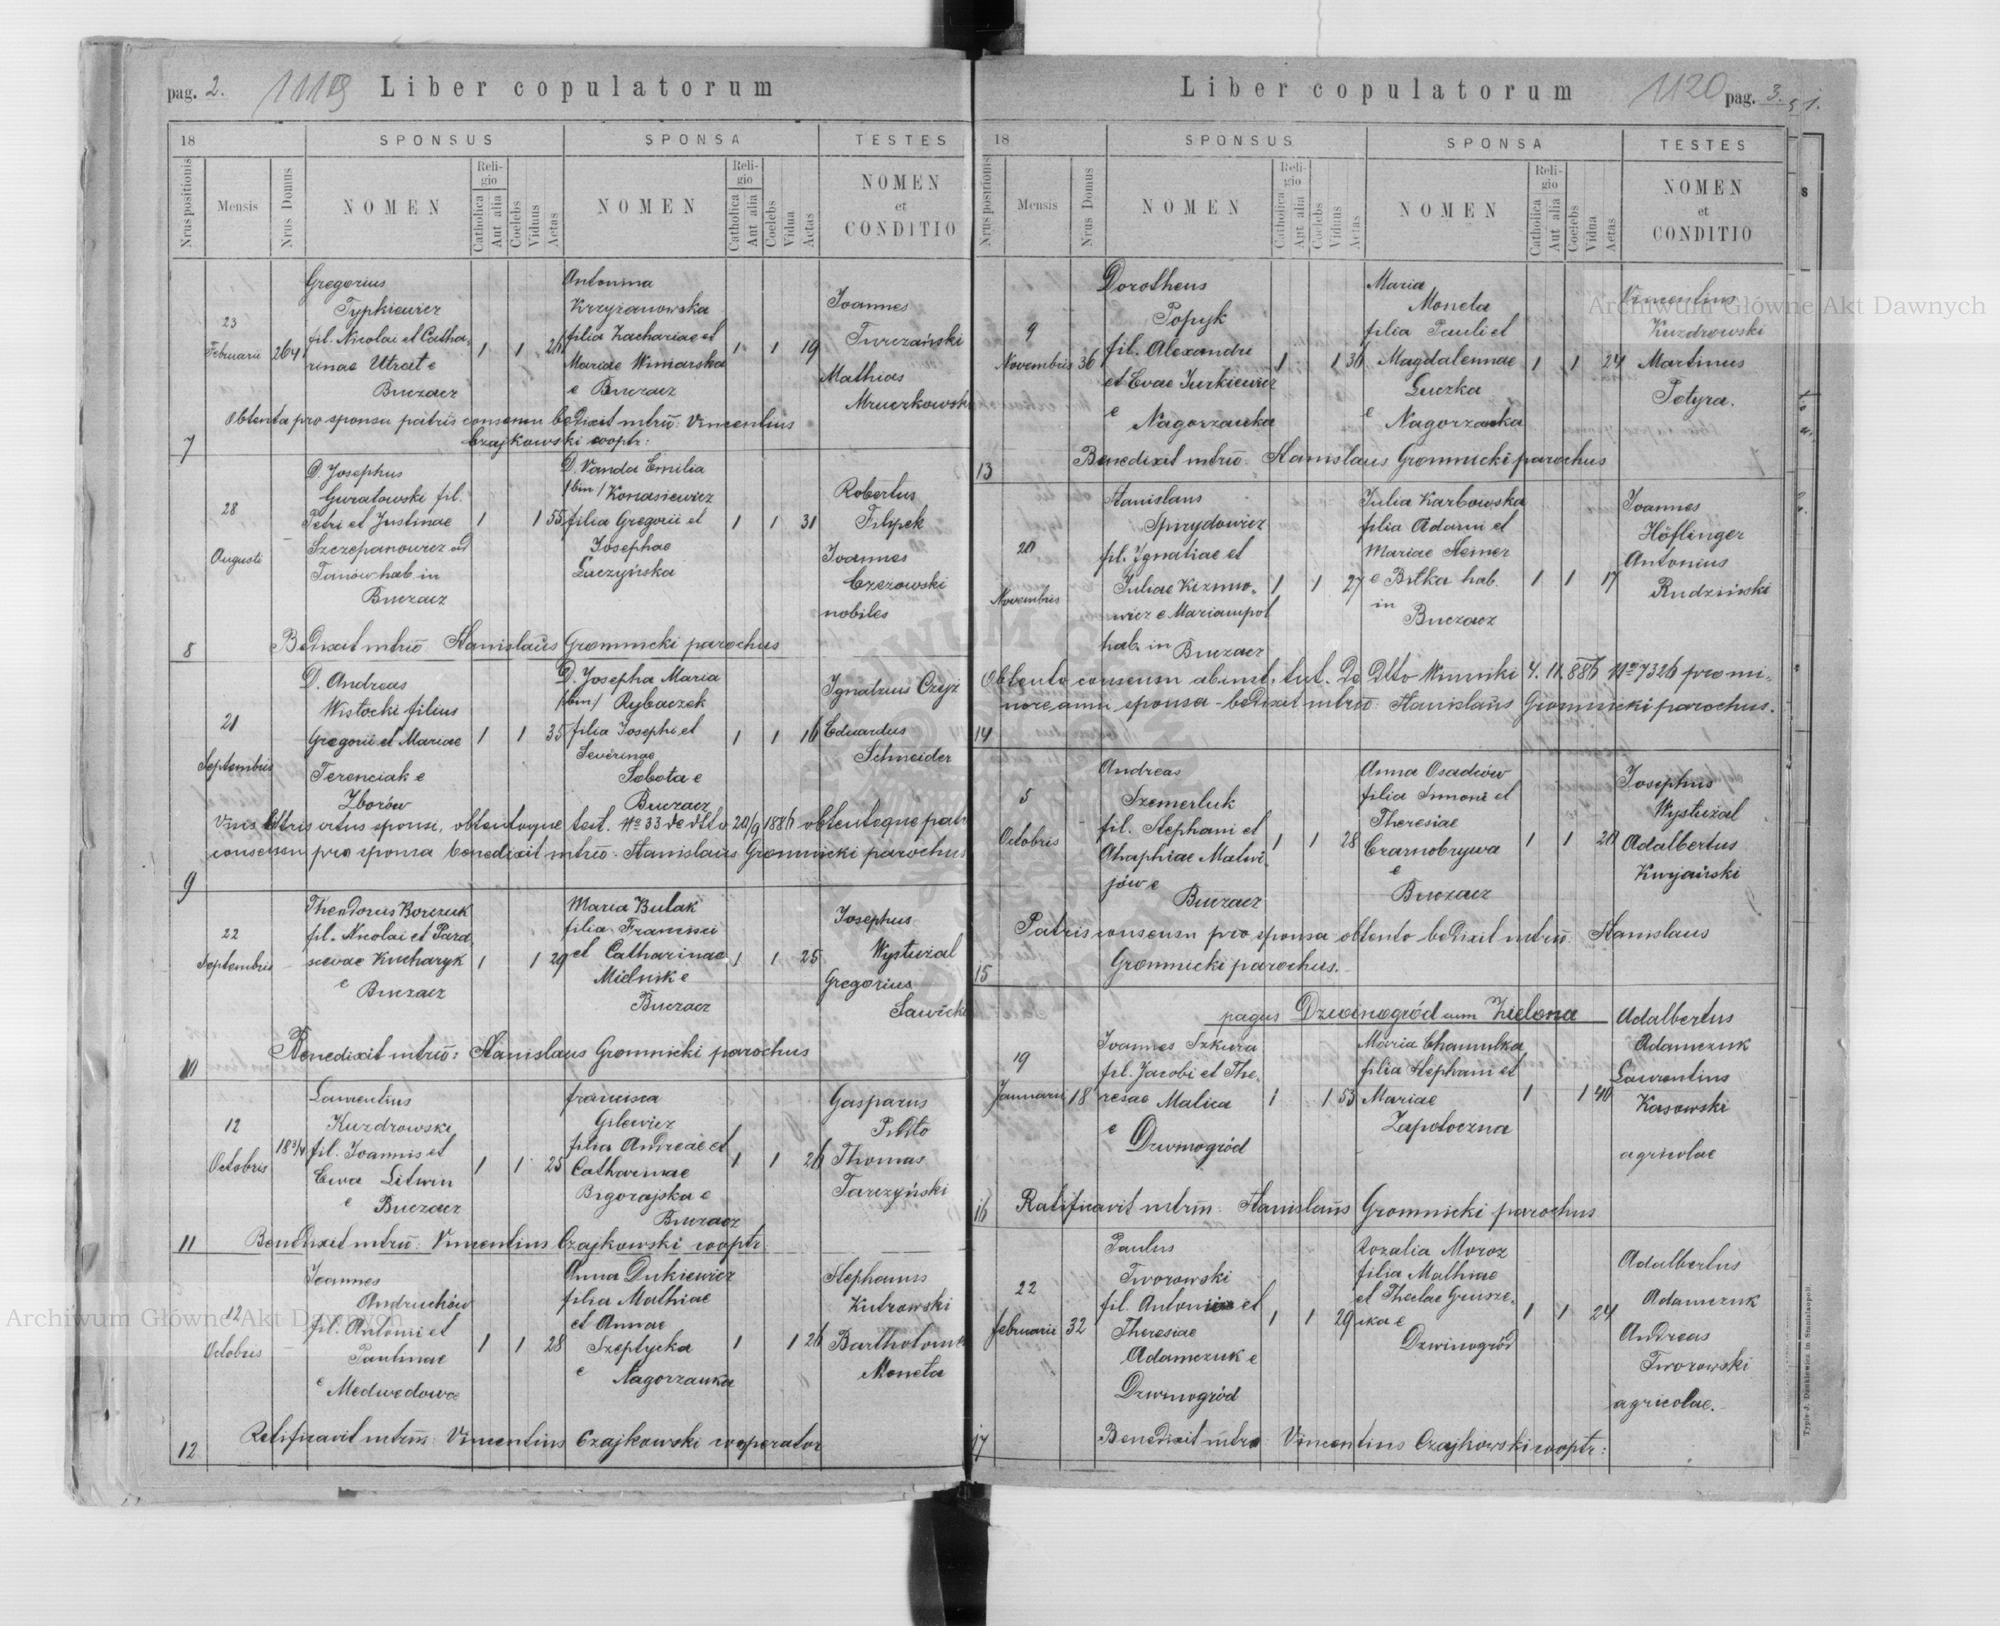 pag. 2.
Liber copulatorum
18
SPONSUS
SPONSA
TESTES
Nrus positionis
Mensis
Nrus Domus
NOMEN
Religio
Catholica
Aut alia
Coelebs
Viduus
Aetas
NOMEN
Religio
Catholica
Aut alia
Coelebs
Vidua
Aetas
NOMEN
et
CONDITIO
7
23
Februarii
264
Gregorius
Typkiewicz
fil. Nicolai et Catha-
rinae Utrat e
Buczacz
1
1
Antonina
Krzyżanowska
filia Zachariae et
Mariae Winiarska
e Buczacz
1
1
19
Joannes
Turczański
Mathias
Mruczkowski
Obtento pro sponsa patris consensu bedixit mtrū: Vincentius
Czajkowski cooptr:
8
28
Augusti
D. Josephus
Guratowski fil.
Petri et Justinae
Szczepanowicz ad
Janów hab. in
Buczacz
1
1
55
D. Vanda Emilia
/bin/ Konasiewicz
filia Gregorii et
Josephae
Luczyńska
1
1
31
Robertus
Filipek
Joannes
Czezowski
nobiles
Bedixit mtrū Stanislaūs Gromnicki parochus
9
21
Septembris
D. Andreas
Wistocki filius
Gregorii et Mariae
Terenciak e
Zborów
1
1
35
D. Josepha Maria
/bin/ Rybaczek
filia Josephi et
Severinae
Sobota e
Buczacz
1
1
16
Ignatzius Czyż
Eduardus
Schneider
obtentoque test. No 33 de dtto 20/9 1886 obtentoque patr
consensu pro sponsa benedixit mtrū. Stanislaūs Gromnicki parochus
10
22
Septembris
Theodorus Borczuk
fil. Nicolai et Para-
scevae Kucharyk
e Buczacz
1
1
29
Maria Bulak
filia Francisci
et Catharinae
Mielnik e
Buczacz
1
1
25
Josephus
Wystużal
Gregorius
Sawicki
Benedixit mtrū: Stanislaus Gromnicki parochus
11
12
Octobris
183/4
Laurentius
Kuzdrowski
fil. Joannis et
Ewa Litwin
e Buczacz
1
1
25
francisca
Gilewicz
filia Andreae et
Catharinae
Bigorajska e
Buczacz
1
1
26
Gasparus
Thomas
Tarczyński
Benedixit mtrū: Vincentius Czajkowski cooptr.
12
12
Octobris
Joannes
Andruchów
fil. Antoni et
Paulinae
e Medwedowce
1
1
28
Anna Dukiewicz
filia Mathiae
et Annae
Szeptycka
e Nagorzanka
1
1
26
Stephanus
Kutrowski
Bartholomae
Moneta
Ratificavit mtrm: Vincentius Czajkowski cooperator
1120
pag. 3.
Liber copulatorum
18
SPONSUS
SPONSA
TESTES
Nrus positionis
Mensis
Nrus Domus
NOMEN
Religio
Catholica
Aut alia
Coelebs
Viduus
Aetas
NOMEN
Religio
Catholica
Aut alia
Coelebs
Vidua
Aetas
NOMEN
et
CONDITIO
13
9
Novembris
36
Dorotheus
Popyk
fil. Alexandri
et Evae Jurkiewicz
e Nagorzanka
1
1
36
Maria
Moneta
filia Pauli et
Magdalennae
Luczka
e Nagorzanka
1
1
24
Vincentius
Kuzdrowski
Martinus
Potyra.
Benedixit mtrū. Stanislaus Gromnicki parochus
14
20
Novembris
Stanislaus
Spirydowicz
fil. Ignatiae et
Juliae Kizimo-
wicz e Mariampol
hab. in Buczacz
1
1
27
Julia Karbowska
filia Adami et
Mariae Steiner
e Bitka hab.
in
Buczacz
1
1
17
Joannes
Höflinger
Antonius
Rudziński
Obtento consensu ab inst. tut. De Dtto Winniki 4. 11. 886 Nro 7326 pro mi-
noreann. sponsa - bedixit mtrū: Stanislaūs Gromnicki parochus.
15
5
Octobris
Andreas
Szemerluk
fil. Stephani et
Ahaphiae Matwi-
jów e
Buczacz
1
1
28
Anna Osadców
filia Simoni et
Theresiae
Czarnobrywa
e
Buczacz
1
1
20
Josephus
Wystużal
Adalbertus
Kujański
Patris consensu pro sponsa obtento bedixit mtrū: Stanislaus
Gromnicki parochus.
pagus Dzwinogród cum Zielona
16
19
Januarii
18
Joannes Szkura
fil. Jacobi et The-
resae Malica
e
Dzwinogród
1
1
53
Maria Chamulka
filia Stephani et
Mariae
Zapotoczna
1
1
40
Adalbertus
Adamczuk
Laurentius
Kasowski
agricolae
Ratificavit mtrm. Stanislaūs Gromnicki parochus
17
22
februarii
32
Paulus
Tworowski
fil. Antonii et
Theresiae
Adamczuk e
Dzwinogród
1
1
29
Rozalia Moroz
filia Mathiae
et Theclae Grusze-
cka e
Dzwinogród
1
1
24
Adalbertus
Adamczuk
Andreas
Tworowski
agricolae.
Benedixit mtrm Vincentius Czajkowski cooptr:
Typis J. Dankiewicz in Stanislaopoli.
Archiwum Główne Akt Dawnych
Archiwum Główne Akt Dawnych